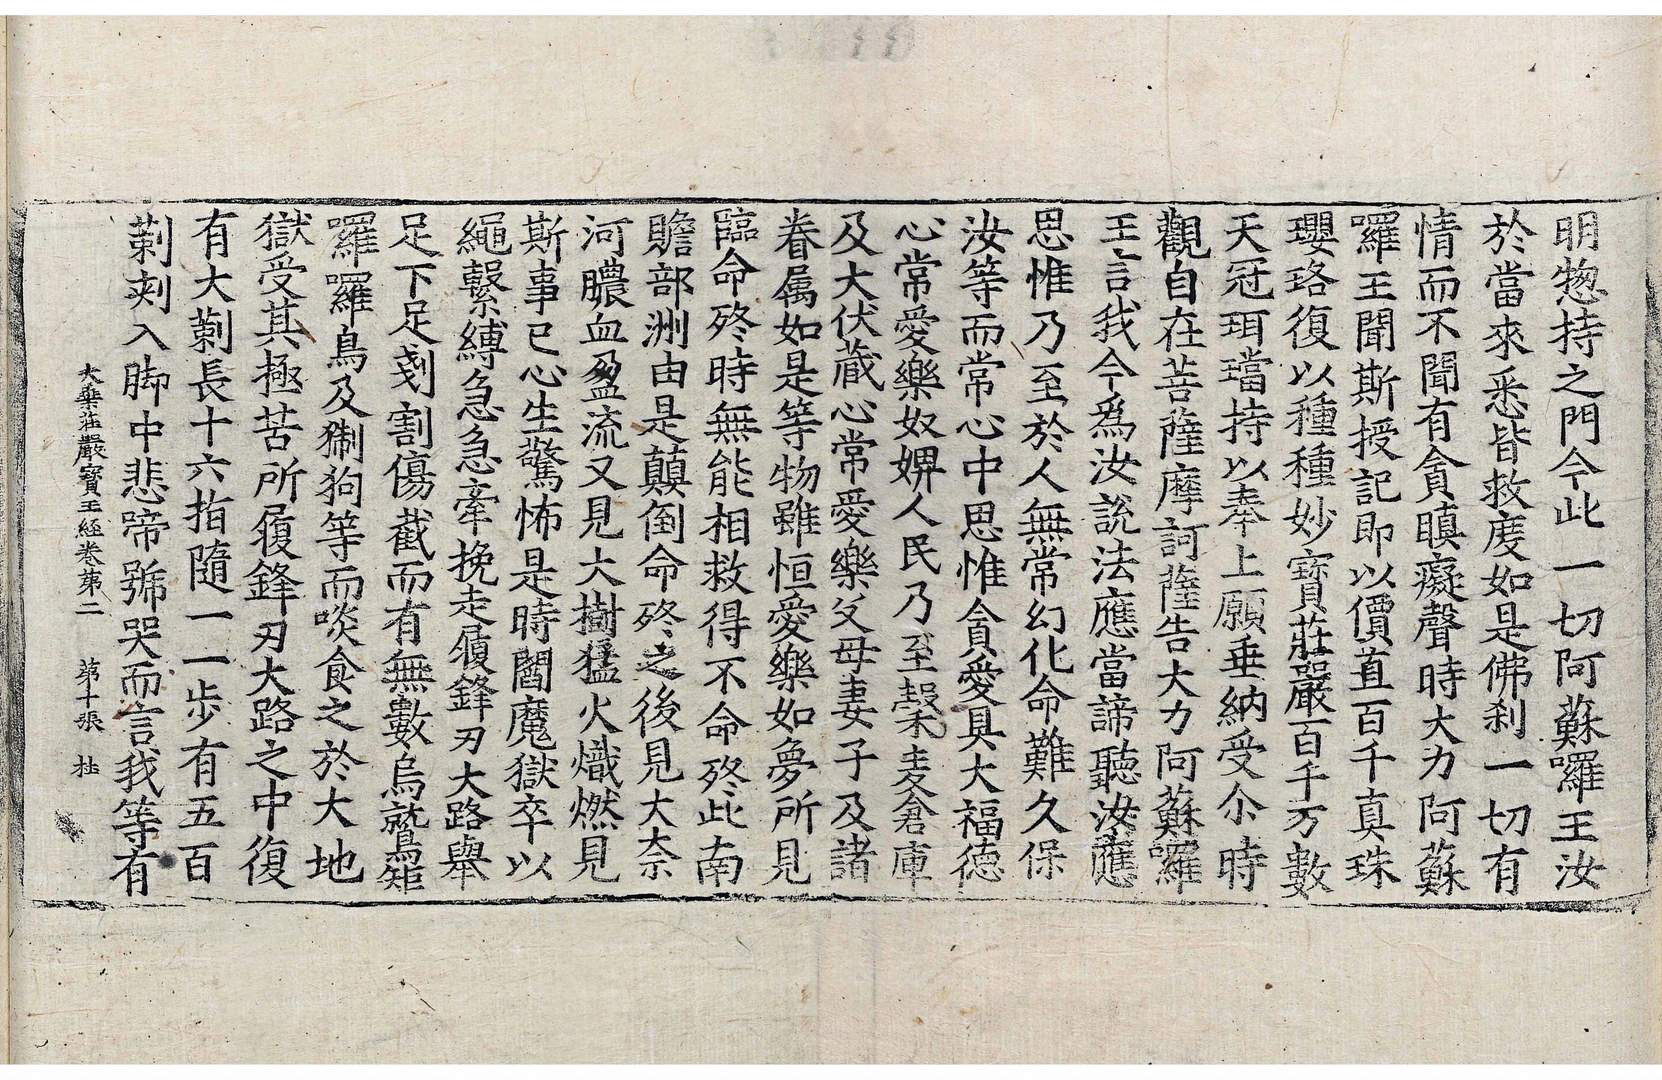 明惣持之門今此一切阿蘇囉王汝
於當來悉皆救度如是佛刹一切有
情而不聞有貪瞋癡聲時大力阿蘇
囉王聞斯授記即以價直百千真珠
瓔珞復以種種妙寶莊嚴百千万數
天冠珥璫持以奉上願垂納受尒時
觀自在菩薩摩訶薩告大力阿蘇囉
王言我今爲汝說法應當諦聽汝應
思惟乃至於人無常幻化命難久保
汝等而常心中思惟貪愛具大福德
心常愛樂奴婢人民乃至穀麦倉庫
及大伏藏心常愛樂父母妻子及諸
眷属如是等物雖恒愛樂如夢所見
臨命終時無能相救得不命終此南
贍部洲由是顛倒命終之後見大奈
河膿血盈流又見大樹猛火熾燃見
斯事已心生驚怖是時閻魔獄卒以
繩繫縛急急牽挽走履鋒刃大路舉
足下足剗割傷截而有無數烏鷲矩
囉囉鳥及猘狗等而啖食之於大地
獄受其極苦所履鋒刃大路之中復
有大莿長十六指隨一一步有五百
莿刾入脚中悲啼號哭而言我等有
大乗莊嚴寶王經卷第二 第十張